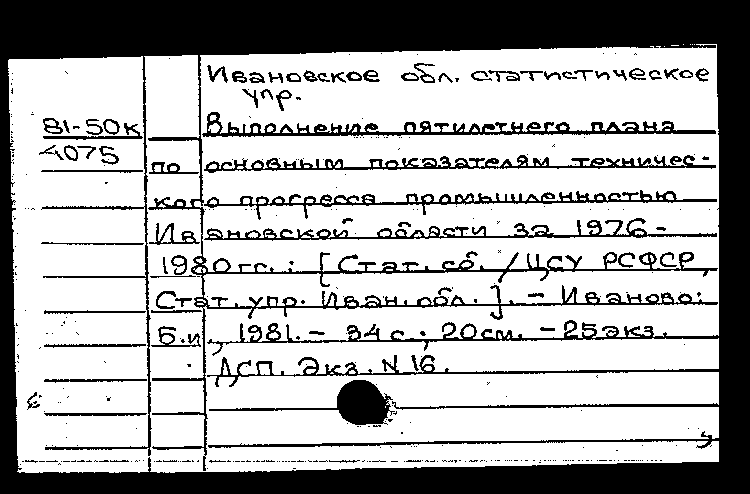 Ивановское обл. статистическое
упр.
81-50к Выполнение пятилетнего плана
4075 по основным показателям техничес-
кого прогресса промышленностью
Ивановской области за 1976-
1980 гг. : [Стат. сб. / ЦСУ РСФСР,
Стат. упр. Иван. обл.]. - Иваново:
Б.и., 1981. - 34 с.; 20 см. - 25 экз.
ДСП. Экз. N 16.